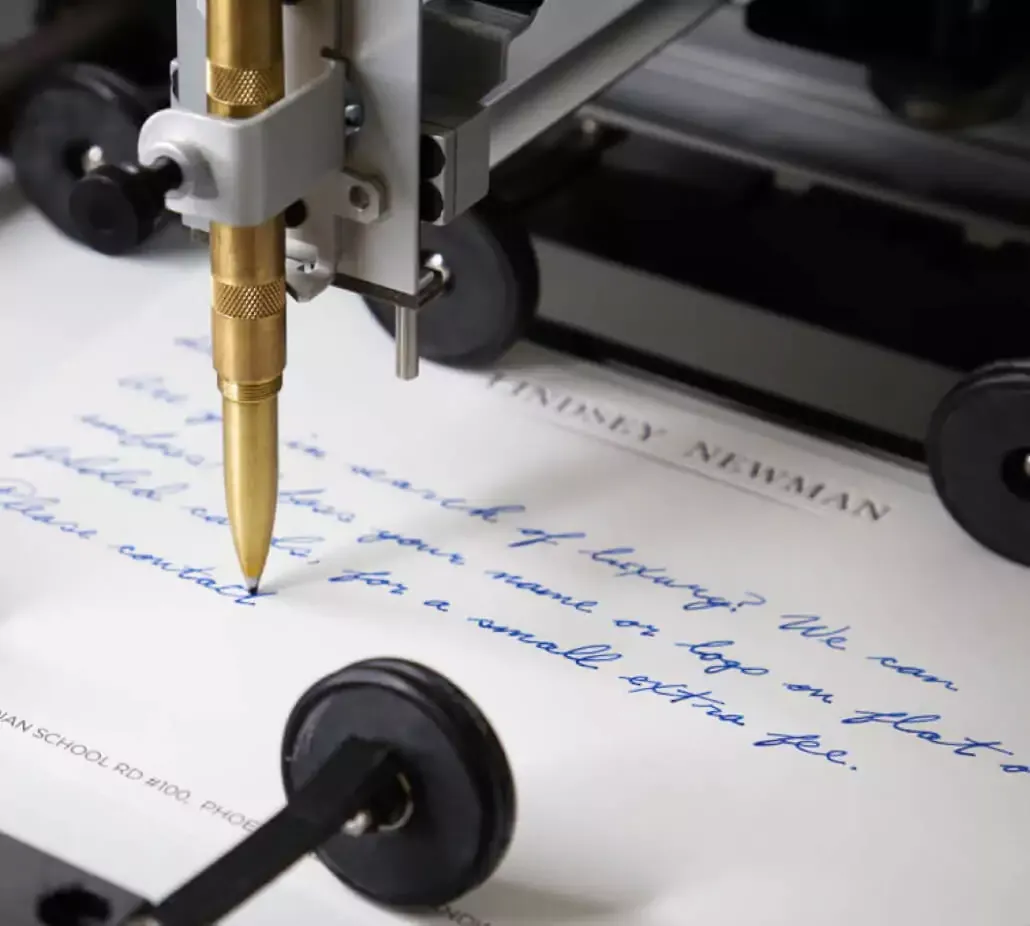 LINDSEY NEWMAN
Are in search of luxury? We can
emboss boss your name or logo on flat o
folded cards, for a small extra fee.
Please contact
IAN SCHOOL RD #100, PHOE